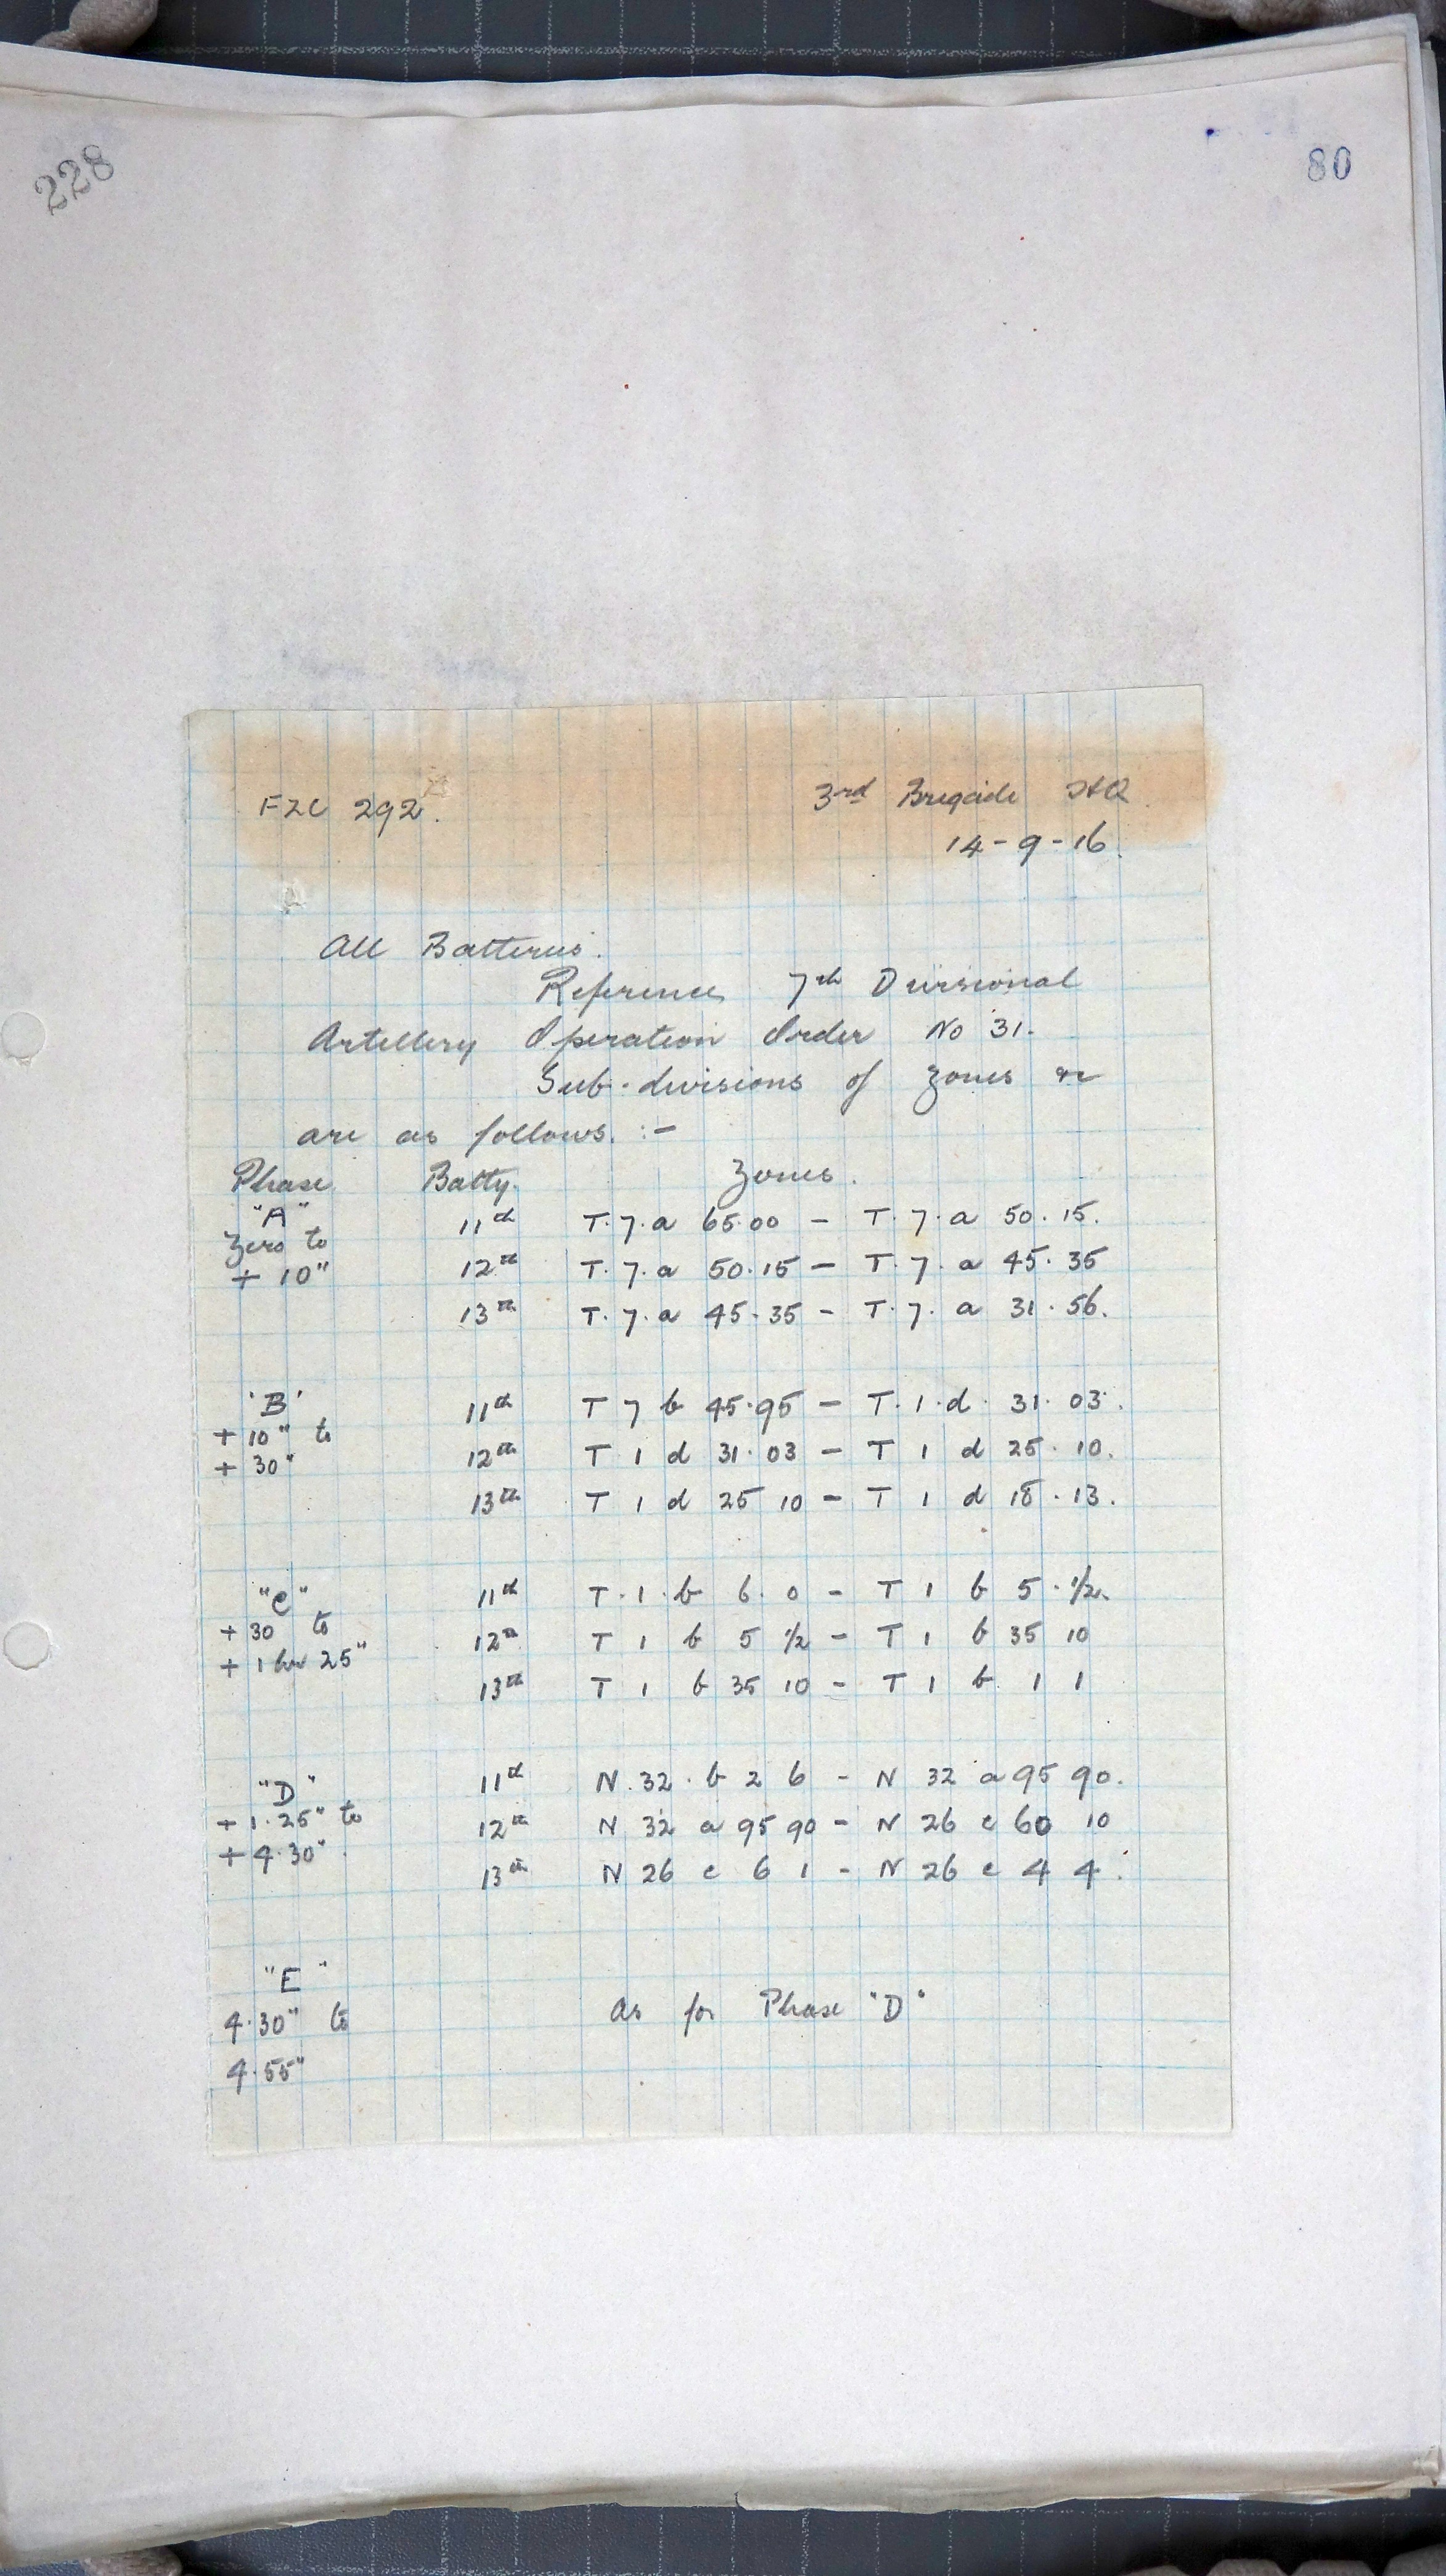 228
80
FZC 292.
3rd Brigade HQ.
14-9-16.
All Batteries.
Reference 7th Divisional
Artillery Operation Order No 31.
Sub-divisions of zones &c
are as follows. :-
Phase Batty. Zones.
"A" 11th T.7.a 65.00 - T.7.a 50.15.
Zero to
+ 10" 12th T.7.a 50.15 - T.7.a 45.35
13th T.7.a 45.35 - T.7.a 31.56.
'B' 11th T 7 b 45.95 - T.1.d. 31.03.
+ 10" to
+ 30" 12th T 1 d 31.03 - T 1 d 25.10.
13th T 1 d 25 10 - T 1 d 18.13.
"C" 11th T.1.b 6.0 - T 1 b 5.1/2.
+ 30 to 12th T 1 b 5 1/2 - T 1 b 35 10
+ 1 hr 25"
13th T 1 b 35 10 - T 1 b 1 1
"D" 11th N.32.b 2 6 - N 32 a 95 90.
+ 1.25" to 12th N 32 a 95 90 - N 26 c 60 10
+ 4.30"
13th N 26 c 6 1 - N 26 c 4 4.
"E"
4.30" to As for Phase "D"
4.55"